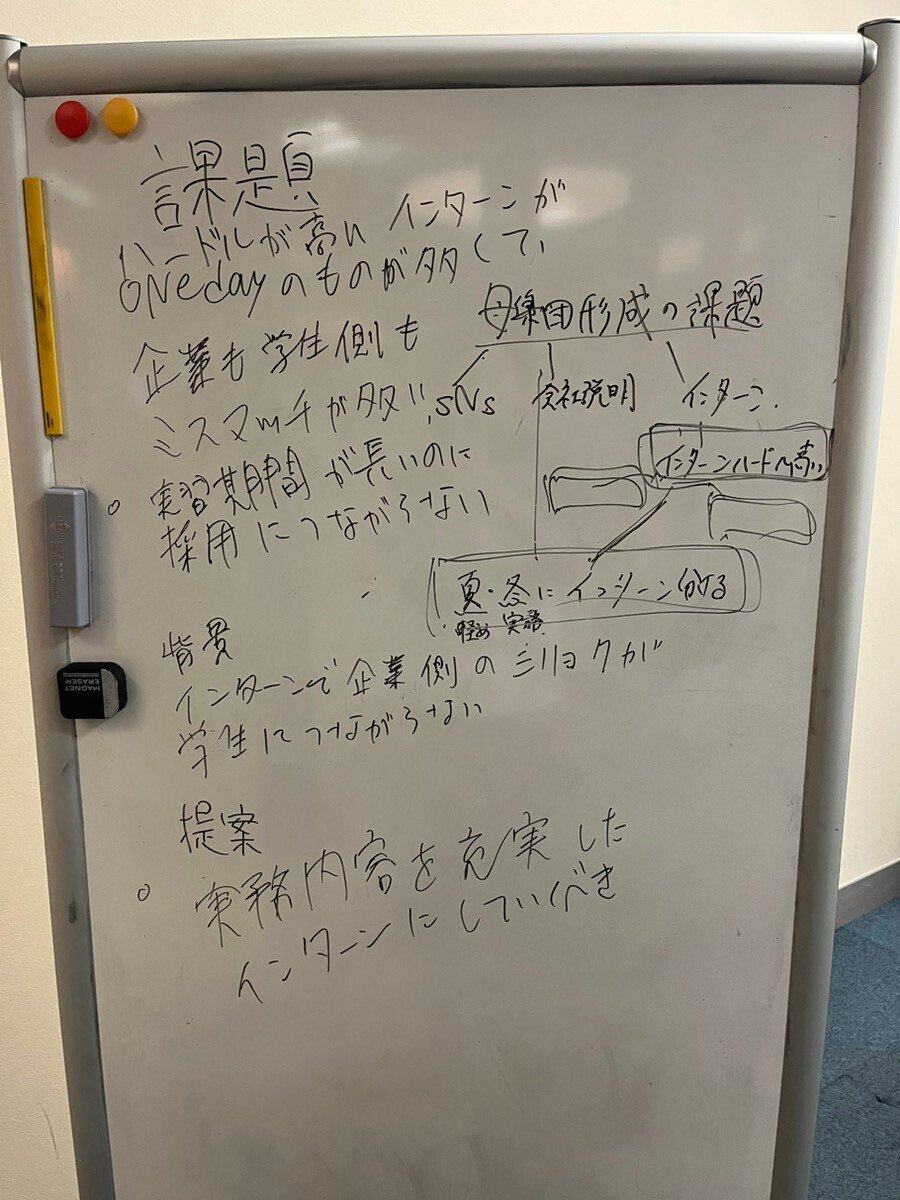 課題
ハードルが高い インターンが
ONE dayのものが多くて、
企業も学生側も
ミスマッチが多い
。実習期間が長いのに
採用につながらない
母集団形成の課題
SNS 会社説明 インターン
インターンハードル高い
夏・冬にインターン分ける
軽め 実務
背景
インターンで企業側のミリョクが
学生につながらない
提案
。実務内容を充実した
インターンにしていくべき
MAGNET
ERASER